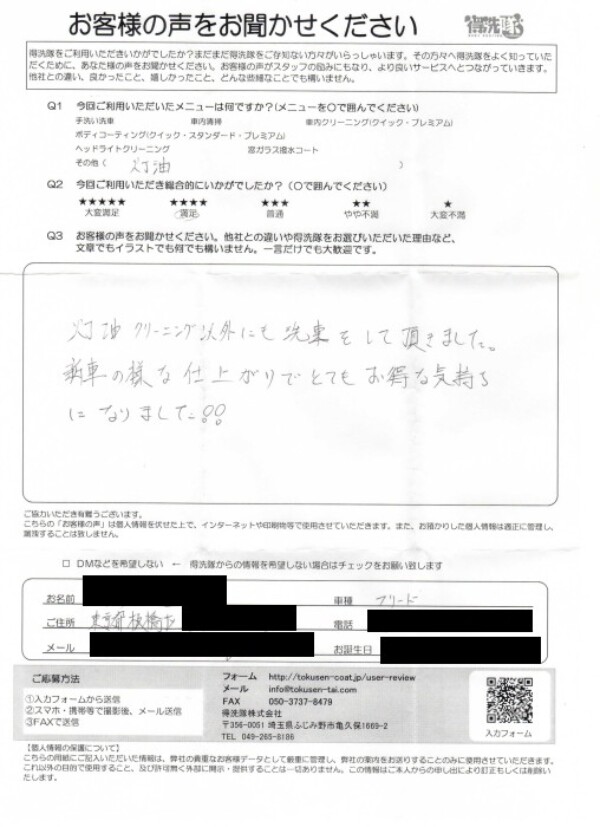 お客様の声をお聞かせください
得洗隊
得洗隊をご利用いただきいかがでしたか？まだまだ得洗隊をご存知ない方々がいらっしゃいます。その方々へ得洗隊をよく知っていた
だくために、あなた様の声をお聞かせください。お客様の声がスタッフの励みにもなり、より良いサービスへとつながっていきます。
他社との違い、良かったこと、嬉しかったこと、どんな些細なことでも構いません。
Q1 今回ご利用いただいたメニューは何ですか？(メニューを〇で囲んでください)
手洗い洗車 車内清掃 車内クリーニング(クイック・プレミアム)
ボディコーティング(クイック・スタンダード・プレミアム)
ヘッドライトクリーニング 窓ガラス撥水コート
その他( 灯油 )
Q2 今回ご利用いただき総合的にいかがでしたか？（〇で囲んでください）
★★★★★ ★★★★ ★★★ ★★ ★
大変満足 満足 普通 やや不満 大変不満
Q3 お客様の声をお聞かせください。他社との違いや得洗隊をお選びいただいた理由など、
文章でもイラストでも何でも構いません。一言だけでも大歓迎です。
灯油クリーニング以外にも洗車をして頂きました。
新車の様な仕上がりでとてもお得な気持ち
になりました!!
ご協力いただき有難うございます。
こちらの「お客様の声」は個人情報を伏せた上で、インターネットや印刷物等で使用させていただきます。また、お預かりした個人情報は適正に管理し、
漏洩することは致しません。
□ DMなどを希望しない ← 得洗隊からの情報を希望しない場合はチェックをお願い致します
お名前 車種 フリード
ご住所 東京都板橋区 電話
メール お誕生日
ご応募方法
①入力フォームから送信
②スマホ・携帯等で撮影後、メール送信
③FAXで送信
フォーム http://tokusen-coat.jp/user-review
メール info@tokusen-tai.com
FAX 050-3737-8479
得洗隊株式会社
〒356-0051 埼玉県ふじみ野市亀久保1669-2
TEL 049-265-8186
入力フォーム
【個人情報の保護について】
こちらの用紙にご記入いただいた情報は、弊社の貴重なお客様データとして厳重に管理し、弊社の案内をお送りすることのみに使用させていただきます。
これ以外の目的で使用すること、及び許可無く外部に開示・提供することは一切ありません。この情報はご本人からの申し出により訂正もしくは削除い
たします。